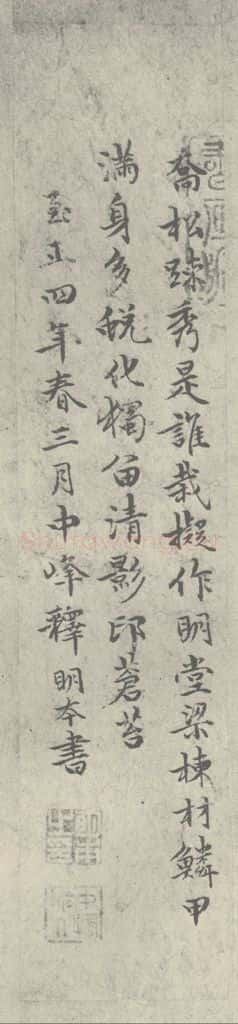 喬松踈秀是誰栽擬作明堂梁棟材鱗甲
滿身多蛻化獨留清影印蒼苔
至正四年春三月中峰釋明本書